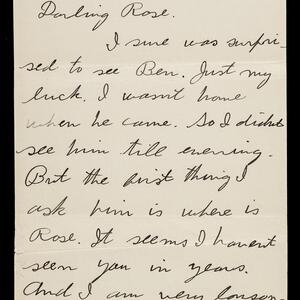 Darling Rose.
I sure was surpri-
sed to see Ben. Just my
luck. I wasn't home
when he came. So I didnt
see him till evening.
But the first thing I
ask him is where is
Rose. It seems I havent
seen you in years.
And I am very lonson